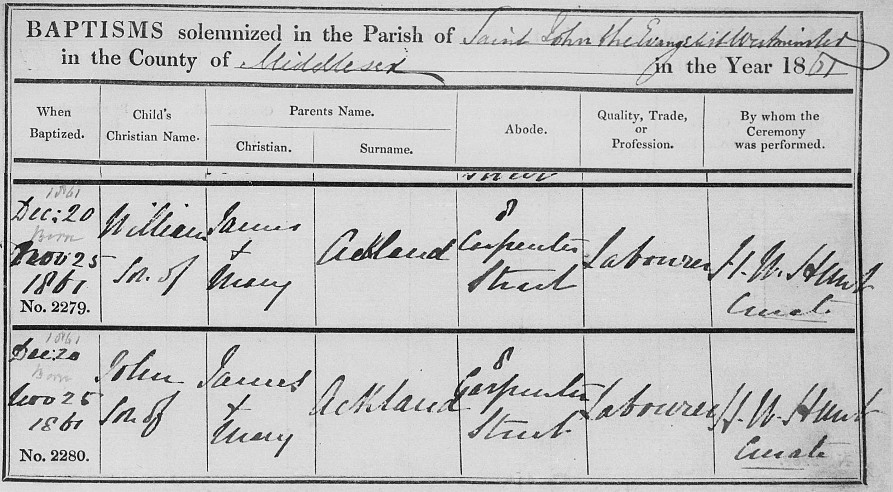 BAPTISMS solemnized in the Parish of Saint John the Evangelist Westminster
in the County of Middlesex in the Year 1861
When Baptized.
Child's Christian Name.
Parents Name.
Christian.
Surname.
Abode.
Quality, Trade, or Profession.
By whom the Ceremony was performed.
1861
Dec: 20
Born
Nov 25
1861
No. 2279.
William
Son of
James
+
Mary
Ackland
8
Carpenter
Street
Labourer
H. W. Hunt
Curate
1861
Dec: 20
Born
Nov 25
1861
No. 2280.
John
Son of
James
+
Mary
Ackland
8
Carpenter
Street
Labourer
H. W. Hunt
Curate